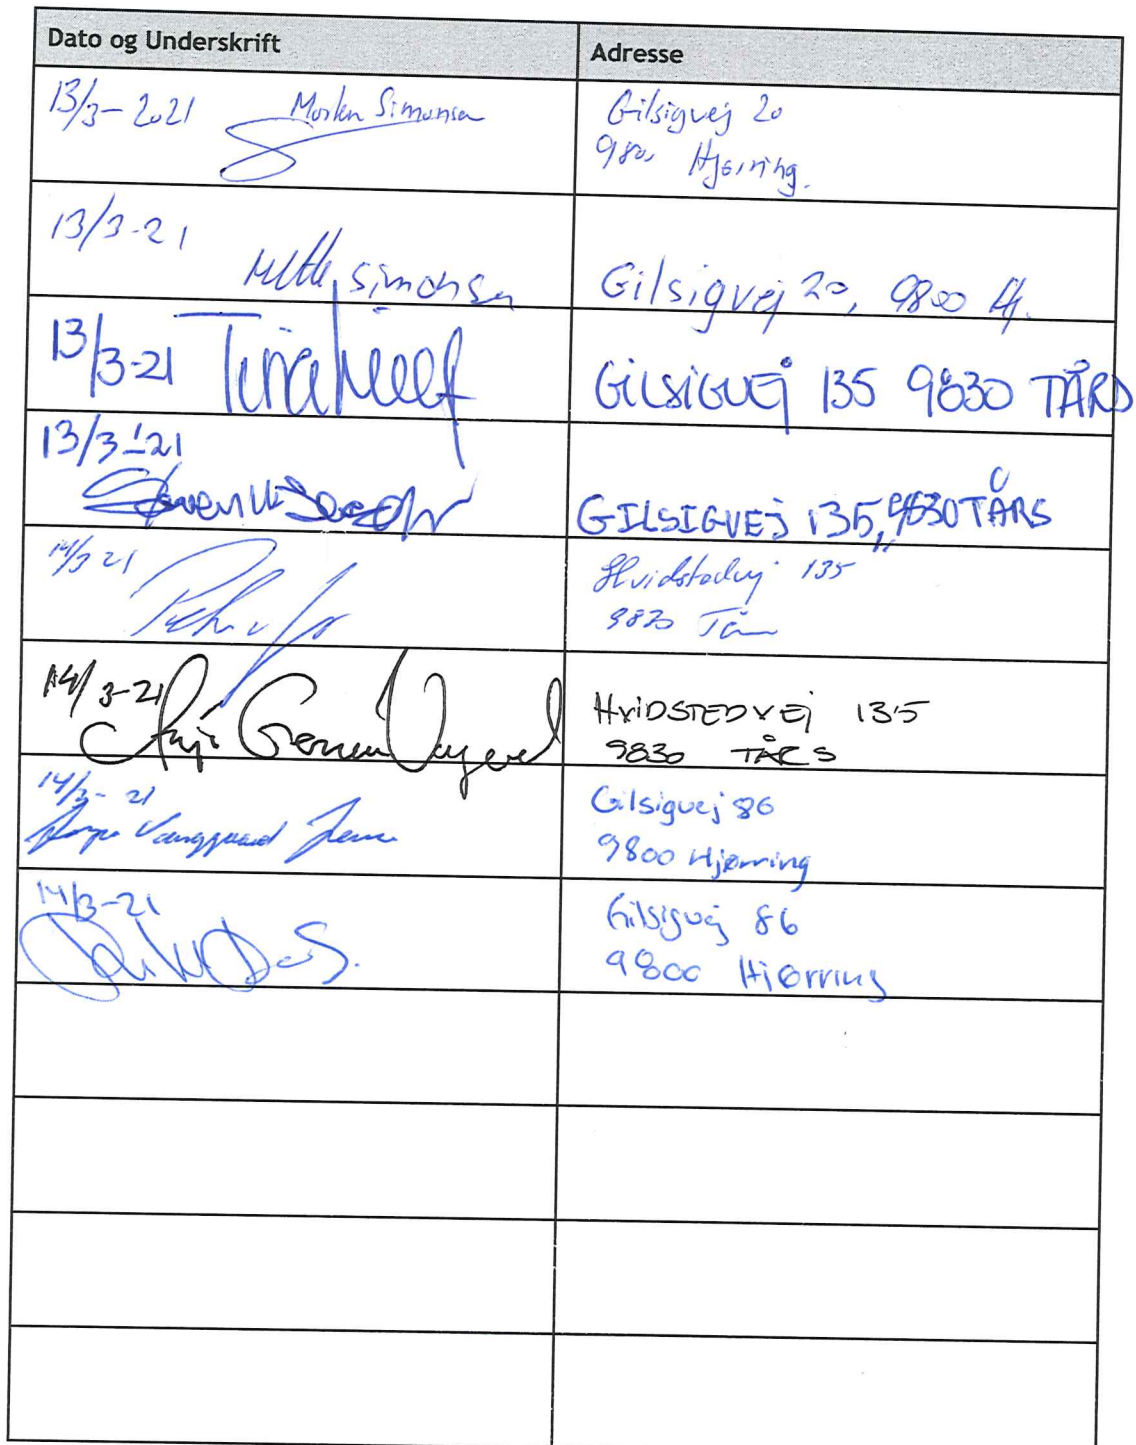 Dato og Underskrift
Adresse
13/3-2021 Morten Simonsen
Gilsigvej 20
9800 Hjørring.
13/3-21
Mette Simonsen
Gilsigvej 20, 9800 Hj.
13/3-21 Tina
GILSIGVEJ 135 9830 TÅRS
13/3-21
GILSIGVEJ 135, 9830 TÅRS
14/3 21
Hvidstedvej 135
9830 Tårs
14/3-21
HVIDSTEDVEJ 135
9830 TÅRS
14/3-21
Vanggaard
Gilsigvej 86
9800 Hjørring
14/3-21
Gilsigvej 86
9800 Hjørring